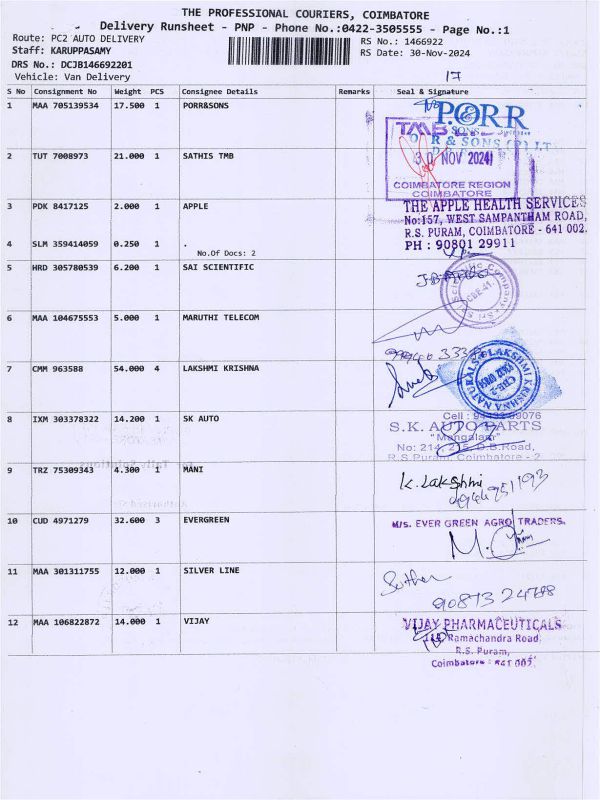 THE PROFESSIONAL COURIERS, COIMBATORE
Delivery Runsheet - PNP - Phone No.:0422-3505555 - Page No.:1
Route: PC2 AUTO DELIVERY
RS No.: 1466922
Staff: KARUPPASAMY
RS Date: 30-Nov-2024
DRS No.: DCJB146692201
Vehicle: Van Delivery
17
S No Consignment No Weight PCS Consignee Details Remarks Seal & Signature
1 MAA 705139534 17.500 1 PORR&SONS
P.ORR
SONS
TMB
R & SONS (P) LT
2 TUT 7008973 21.000 1 SATHIS TMB
30 NOV 2024
COIMBATORE REGION
COIMBATORE
3 PDK 8417125 2.000 1 APPLE
THE APPLE HEALTH SERVICES
No:157, WEST SAMPANTHAM ROAD,
R.S. PURAM, COIMBATORE - 641 002.
PH : 90801 29911
4 SLM 359414059 0.250 1 .
No.Of Docs: 2
5 HRD 305780539 6.200 1 SAI SCIENTIFIC
Sri Sai Scientific Company
CBE-41.
6 MAA 104675553 5.000 1 MARUTHI TELECOM
7 CMM 963588 54.000 4 LAKSHMI KRISHNA
LAKSHMI KRISHNA NATURALS
CBE-2
8 IXM 303378322 14.200 1 SK AUTO
S.K. AUTO PARTS
"Mangalam"
No: 214, 215, D.B.Road,
R.S.Puram, Coimbatore - 2
9 TRZ 75309343 4.300 1 MANI
K. Lakshmi
10 CUD 4971279 32.600 3 EVERGREEN
M/s. EVER GREEN AGRO TRADERS.
11 MAA 301311755 12.000 1 SILVER LINE
12 MAA 106822872 14.000 1 VIJAY
VIJAY PHARMACEUTICALS
Ramachandra Road
R.S. Puram,
Coimbatore - 641 002.